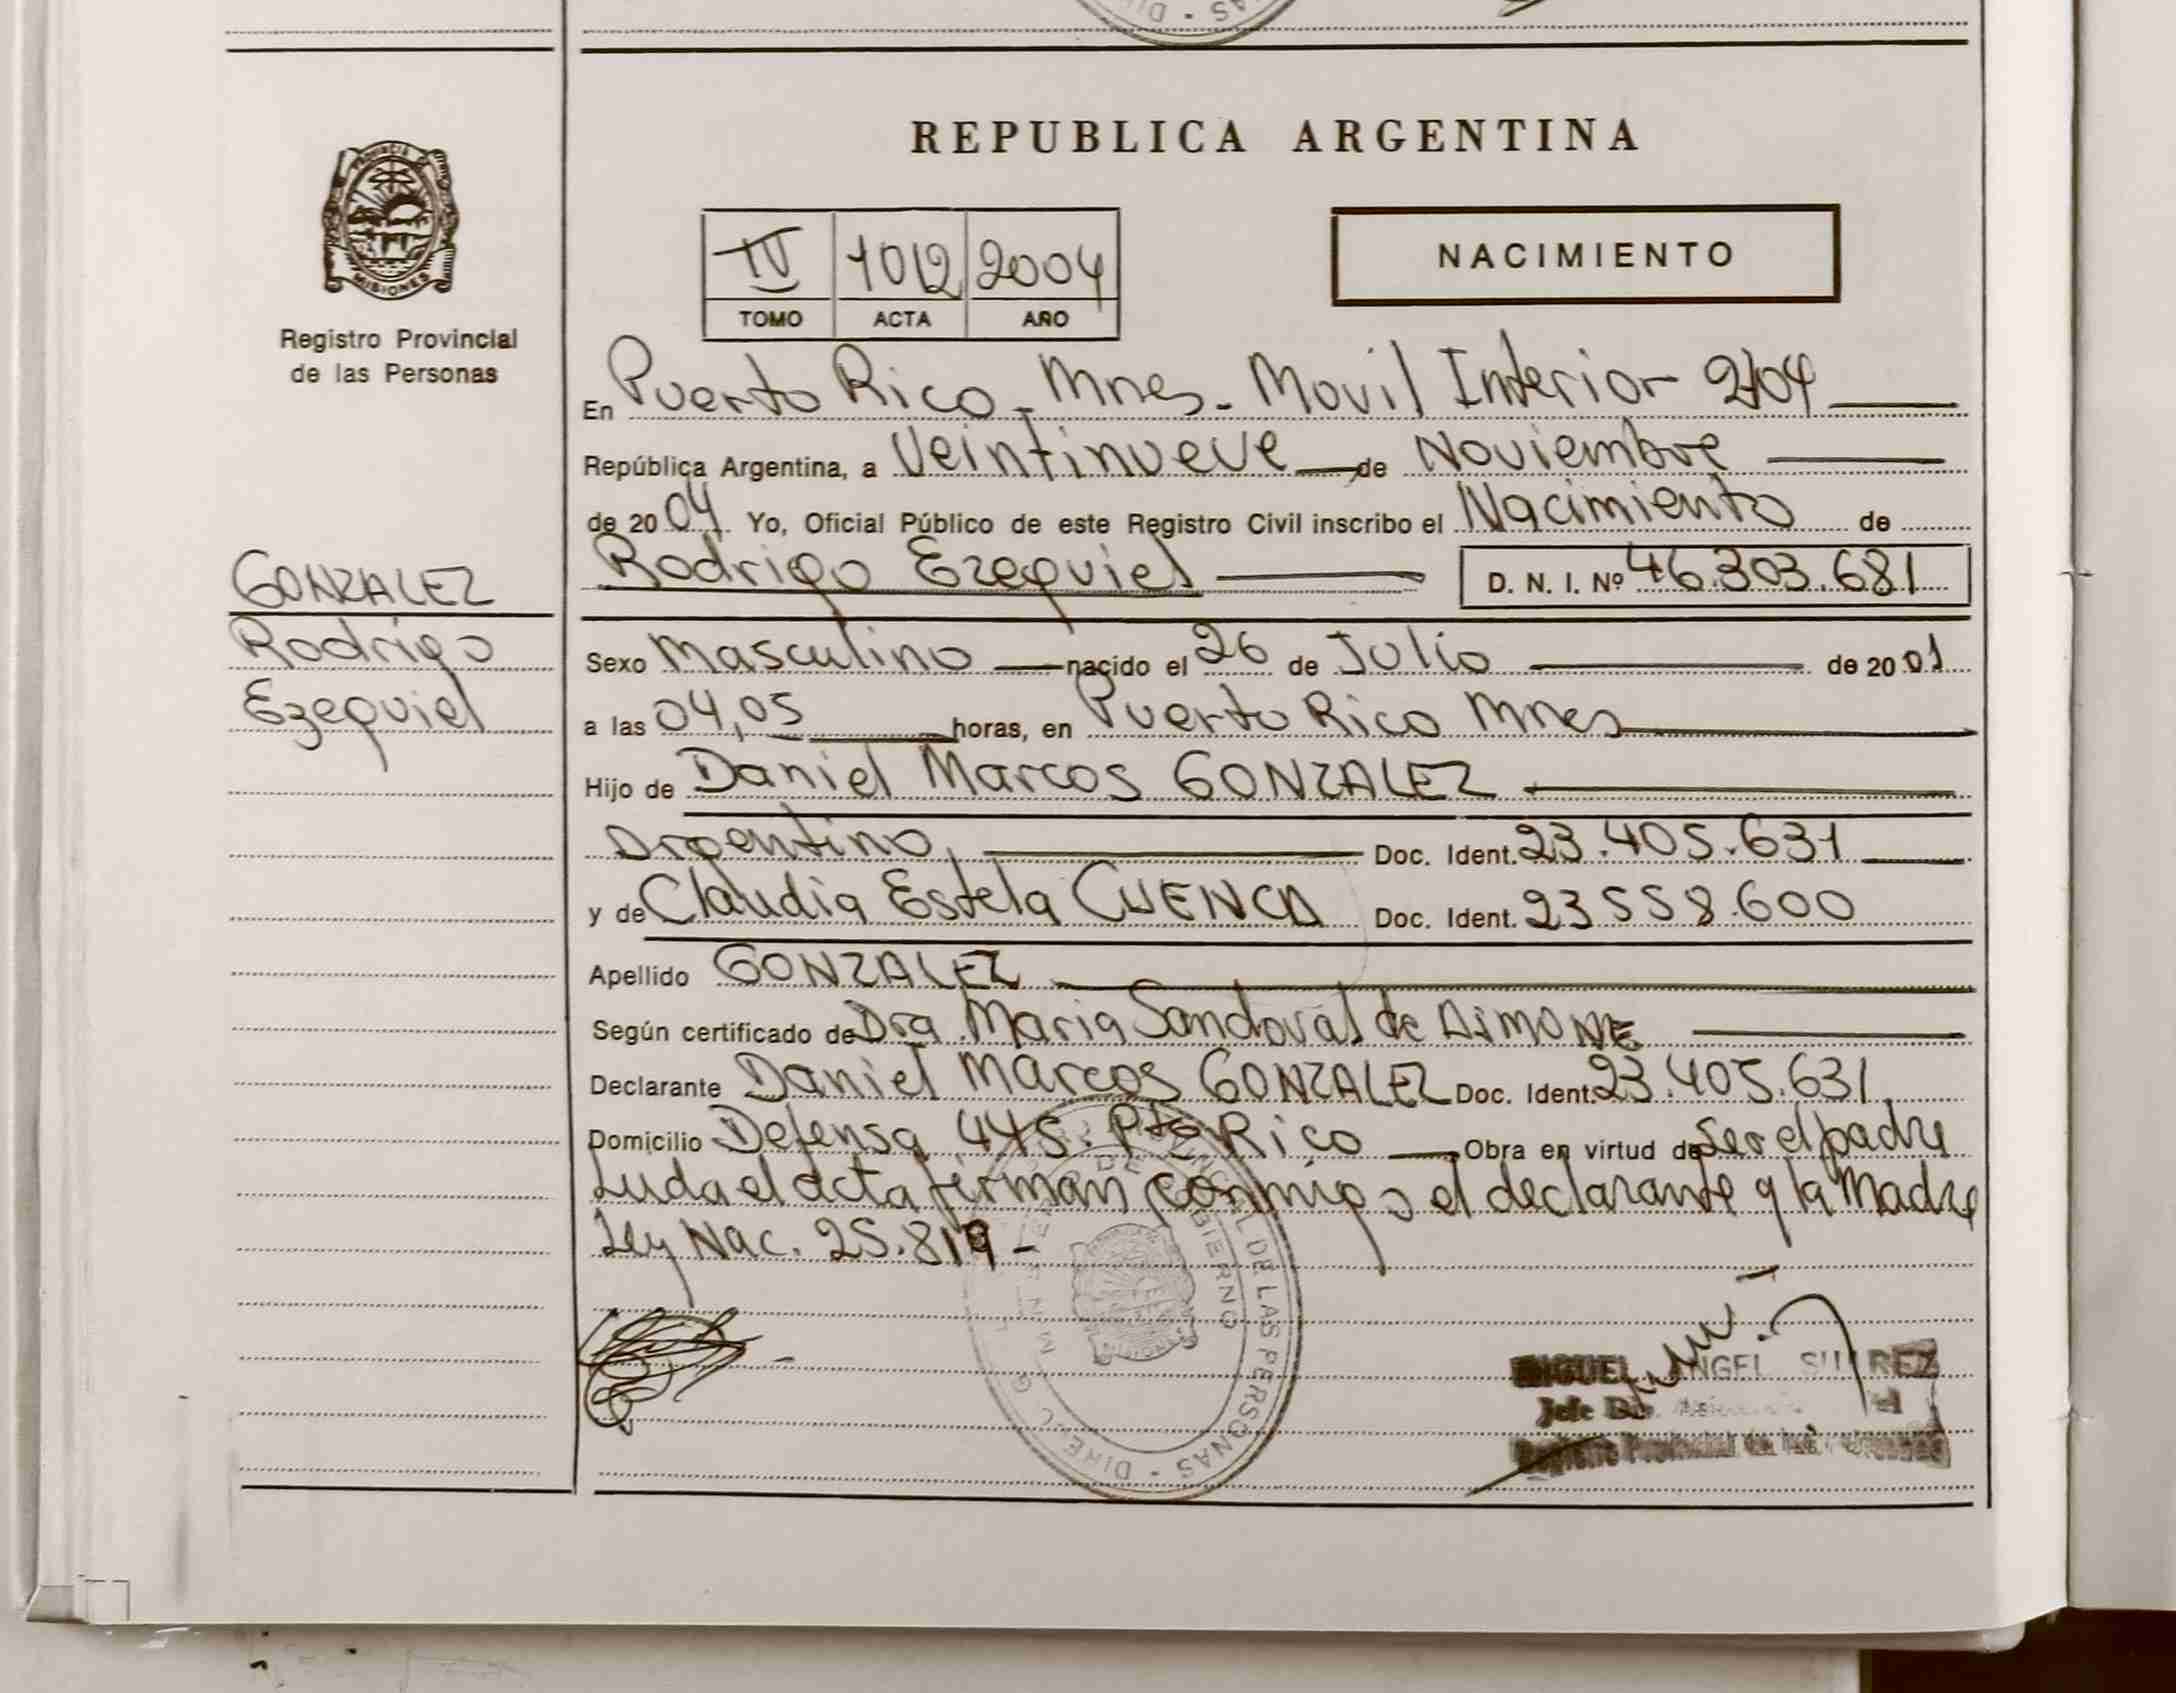 REPUBLICA ARGENTINA
PROVINCIA DE
MISIONES
Registro Provincial
de las Personas
IV 1012 2004
TOMO ACTA AÑO
NACIMIENTO
En Puerto Rico - Mnes - Movil Interior 2/04
República Argentina, a Veintinueve de Noviembre
de 2004 Yo, Oficial Público de este Registro Civil inscribo el Nacimiento de
Rodrigo Ezequiel D. N. I. Nº 46.303.681
GONZALEZ
Rodrigo
Ezequiel
Sexo Masculino nacido el 26 de Julio de 2001
a las 04,05 horas, en Puerto Rico Mnes
Hijo de Daniel Marcos GONZALEZ
Argentino, Doc. Ident. 23.405.631
y de Claudia Estela CUENCA Doc. Ident. 23558.600
Apellido GONZALEZ
Según certificado de Dra. Maria Sandoval de AIMONE
Declarante Daniel Marcos GONZALEZ Doc. Ident. 23.405.631
Domicilio Defensa 445. Pto Rico Obra en virtud de Ser el padre
Luda el acta firman conmigo el declarante y la Madre
Ley Nac. 25.819 -
DE LAS PERSONAS - DIREC
GOBIERNO
MIGUEL ANGEL SUAREZ
Jefe
Registro Provincial de las Personas